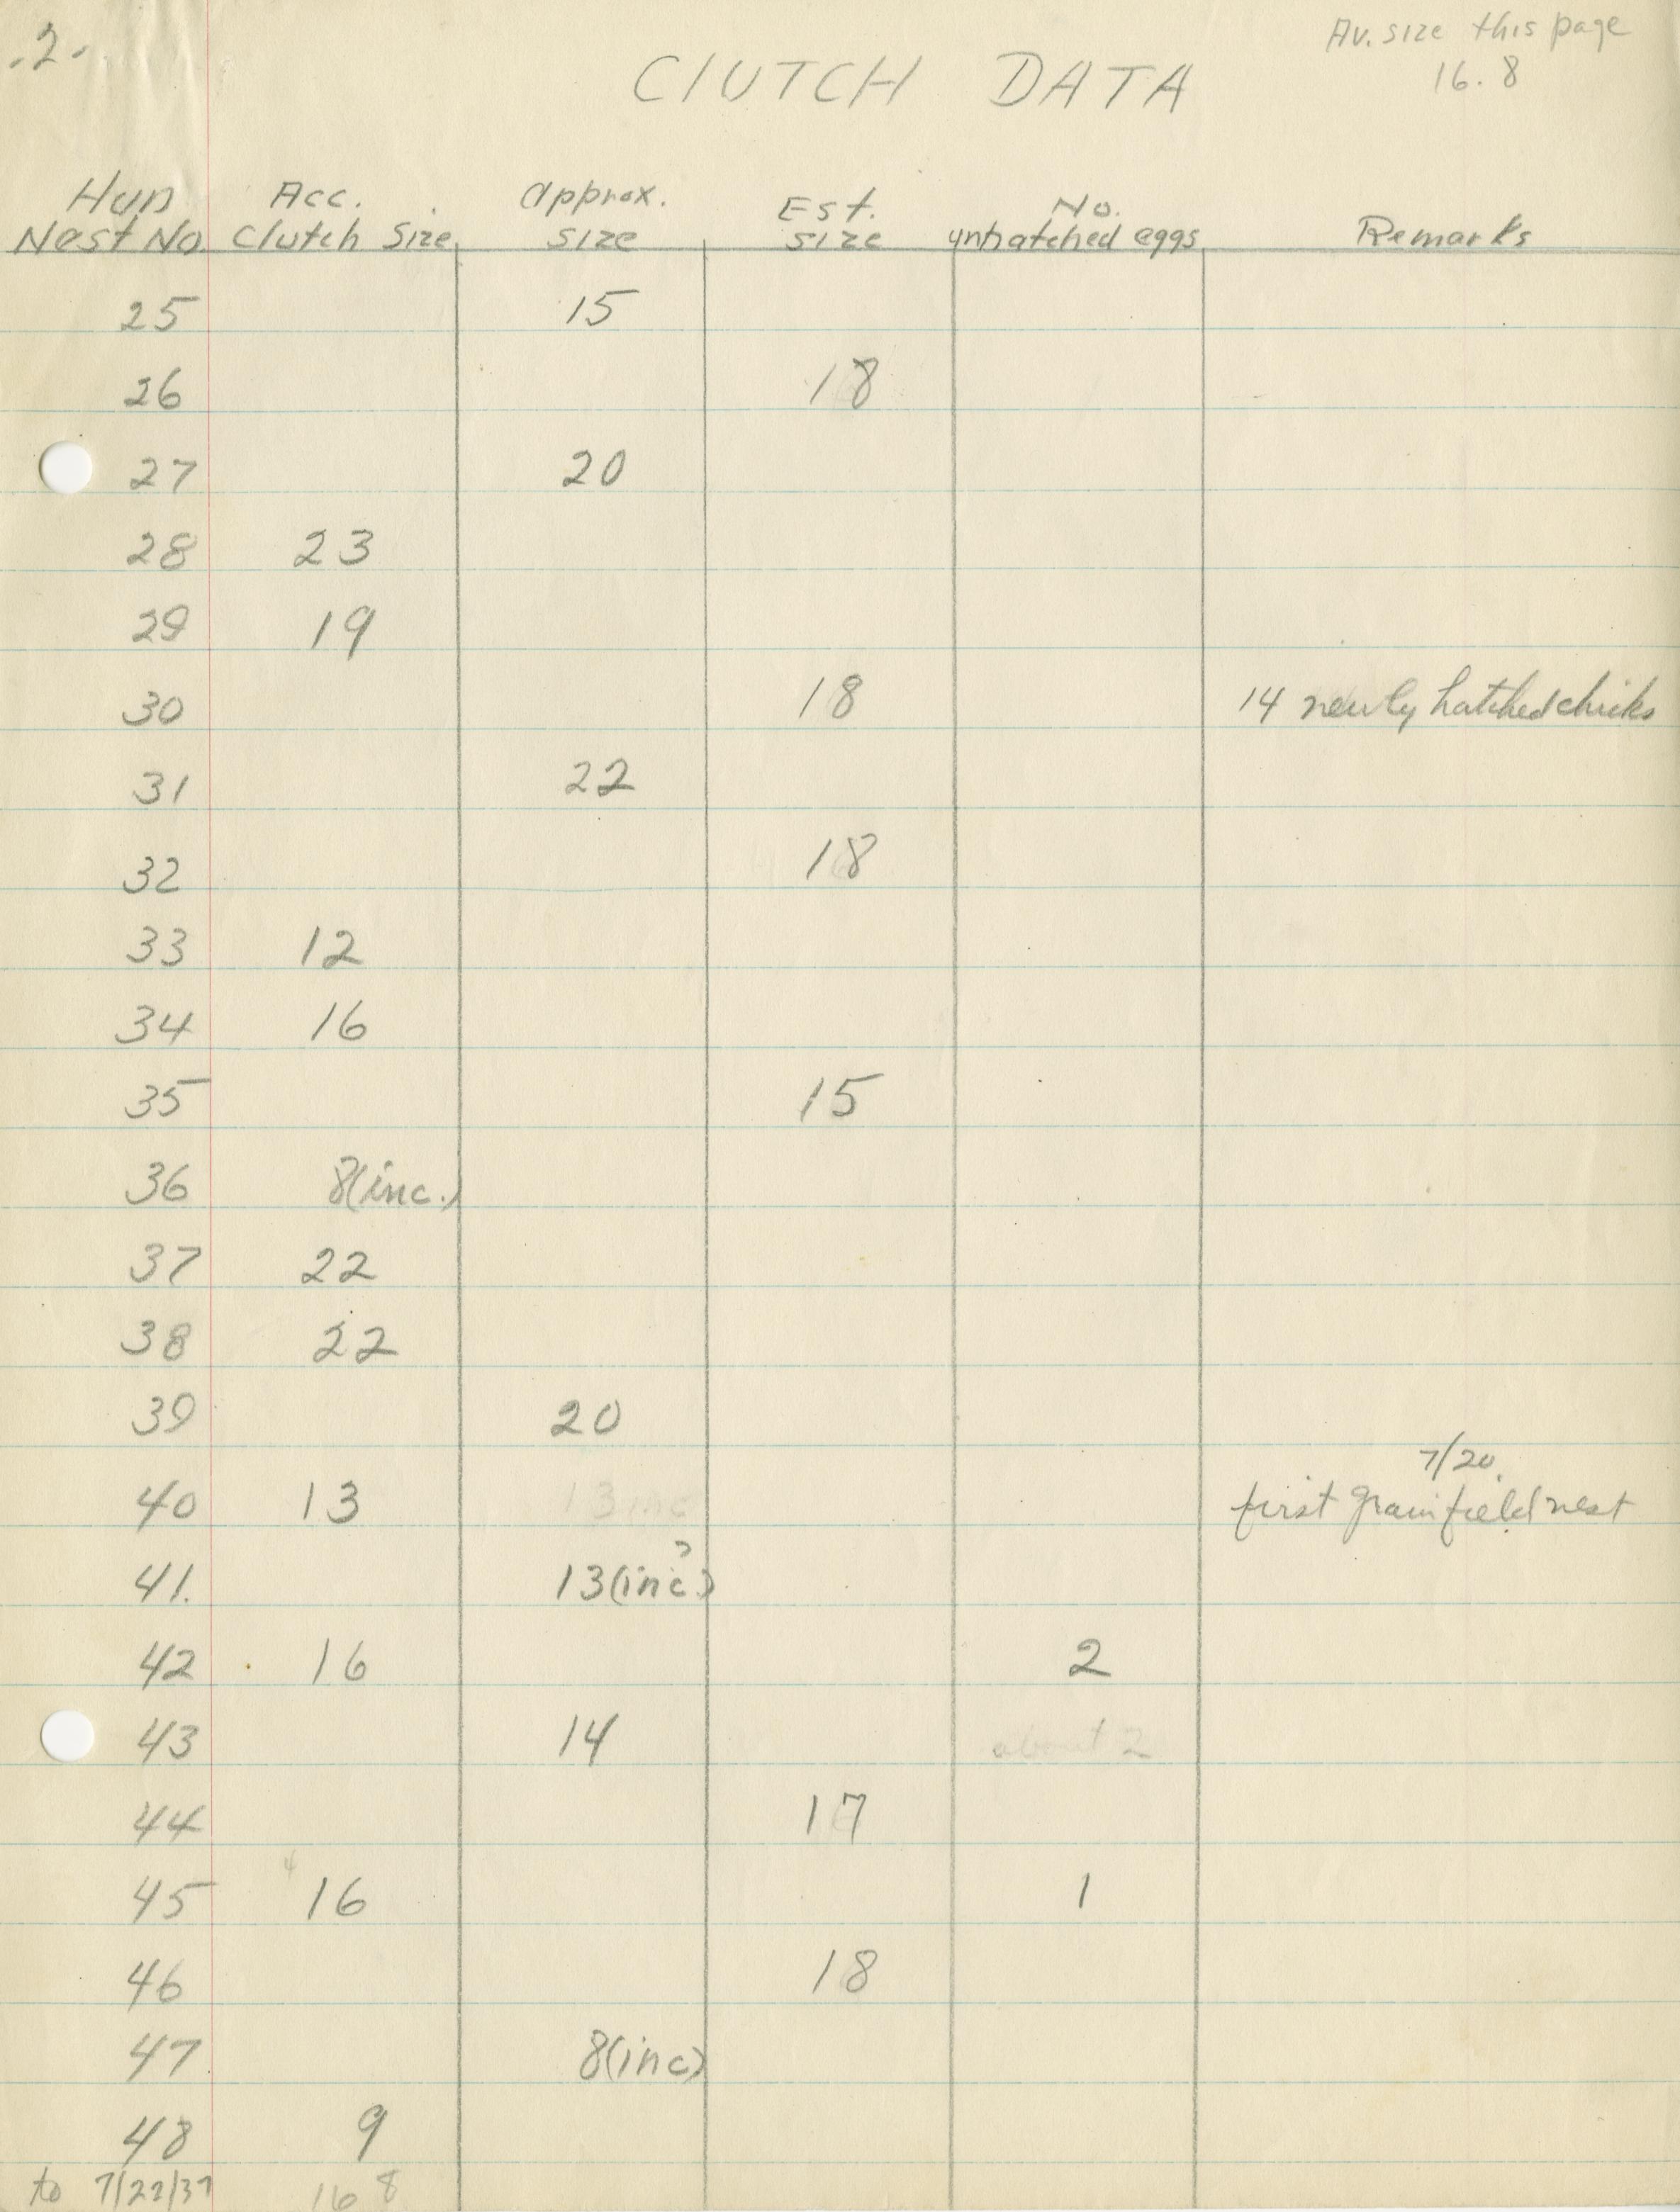 -2-
Av. size this page
16.8
CLUTCH DATA
Hun Acc. approx. Est. No.
Nest No. Clutch Size size size unhatched eggs Remarks
25 15
26 18
27 20
28 23
29 19
30 18 14 newly hatched chicks
31 22
32 18
33 12
34 16
35 15
36 8(inc.)
37 22
38 22
39 20
7/20
40 13 13 inc first grainfield nest
41. 13(inc?)
42 16 2
43 14 about 2
44 17
45 16 1
46 18
47 8(inc)
48 9
to 7/22/37 16 8